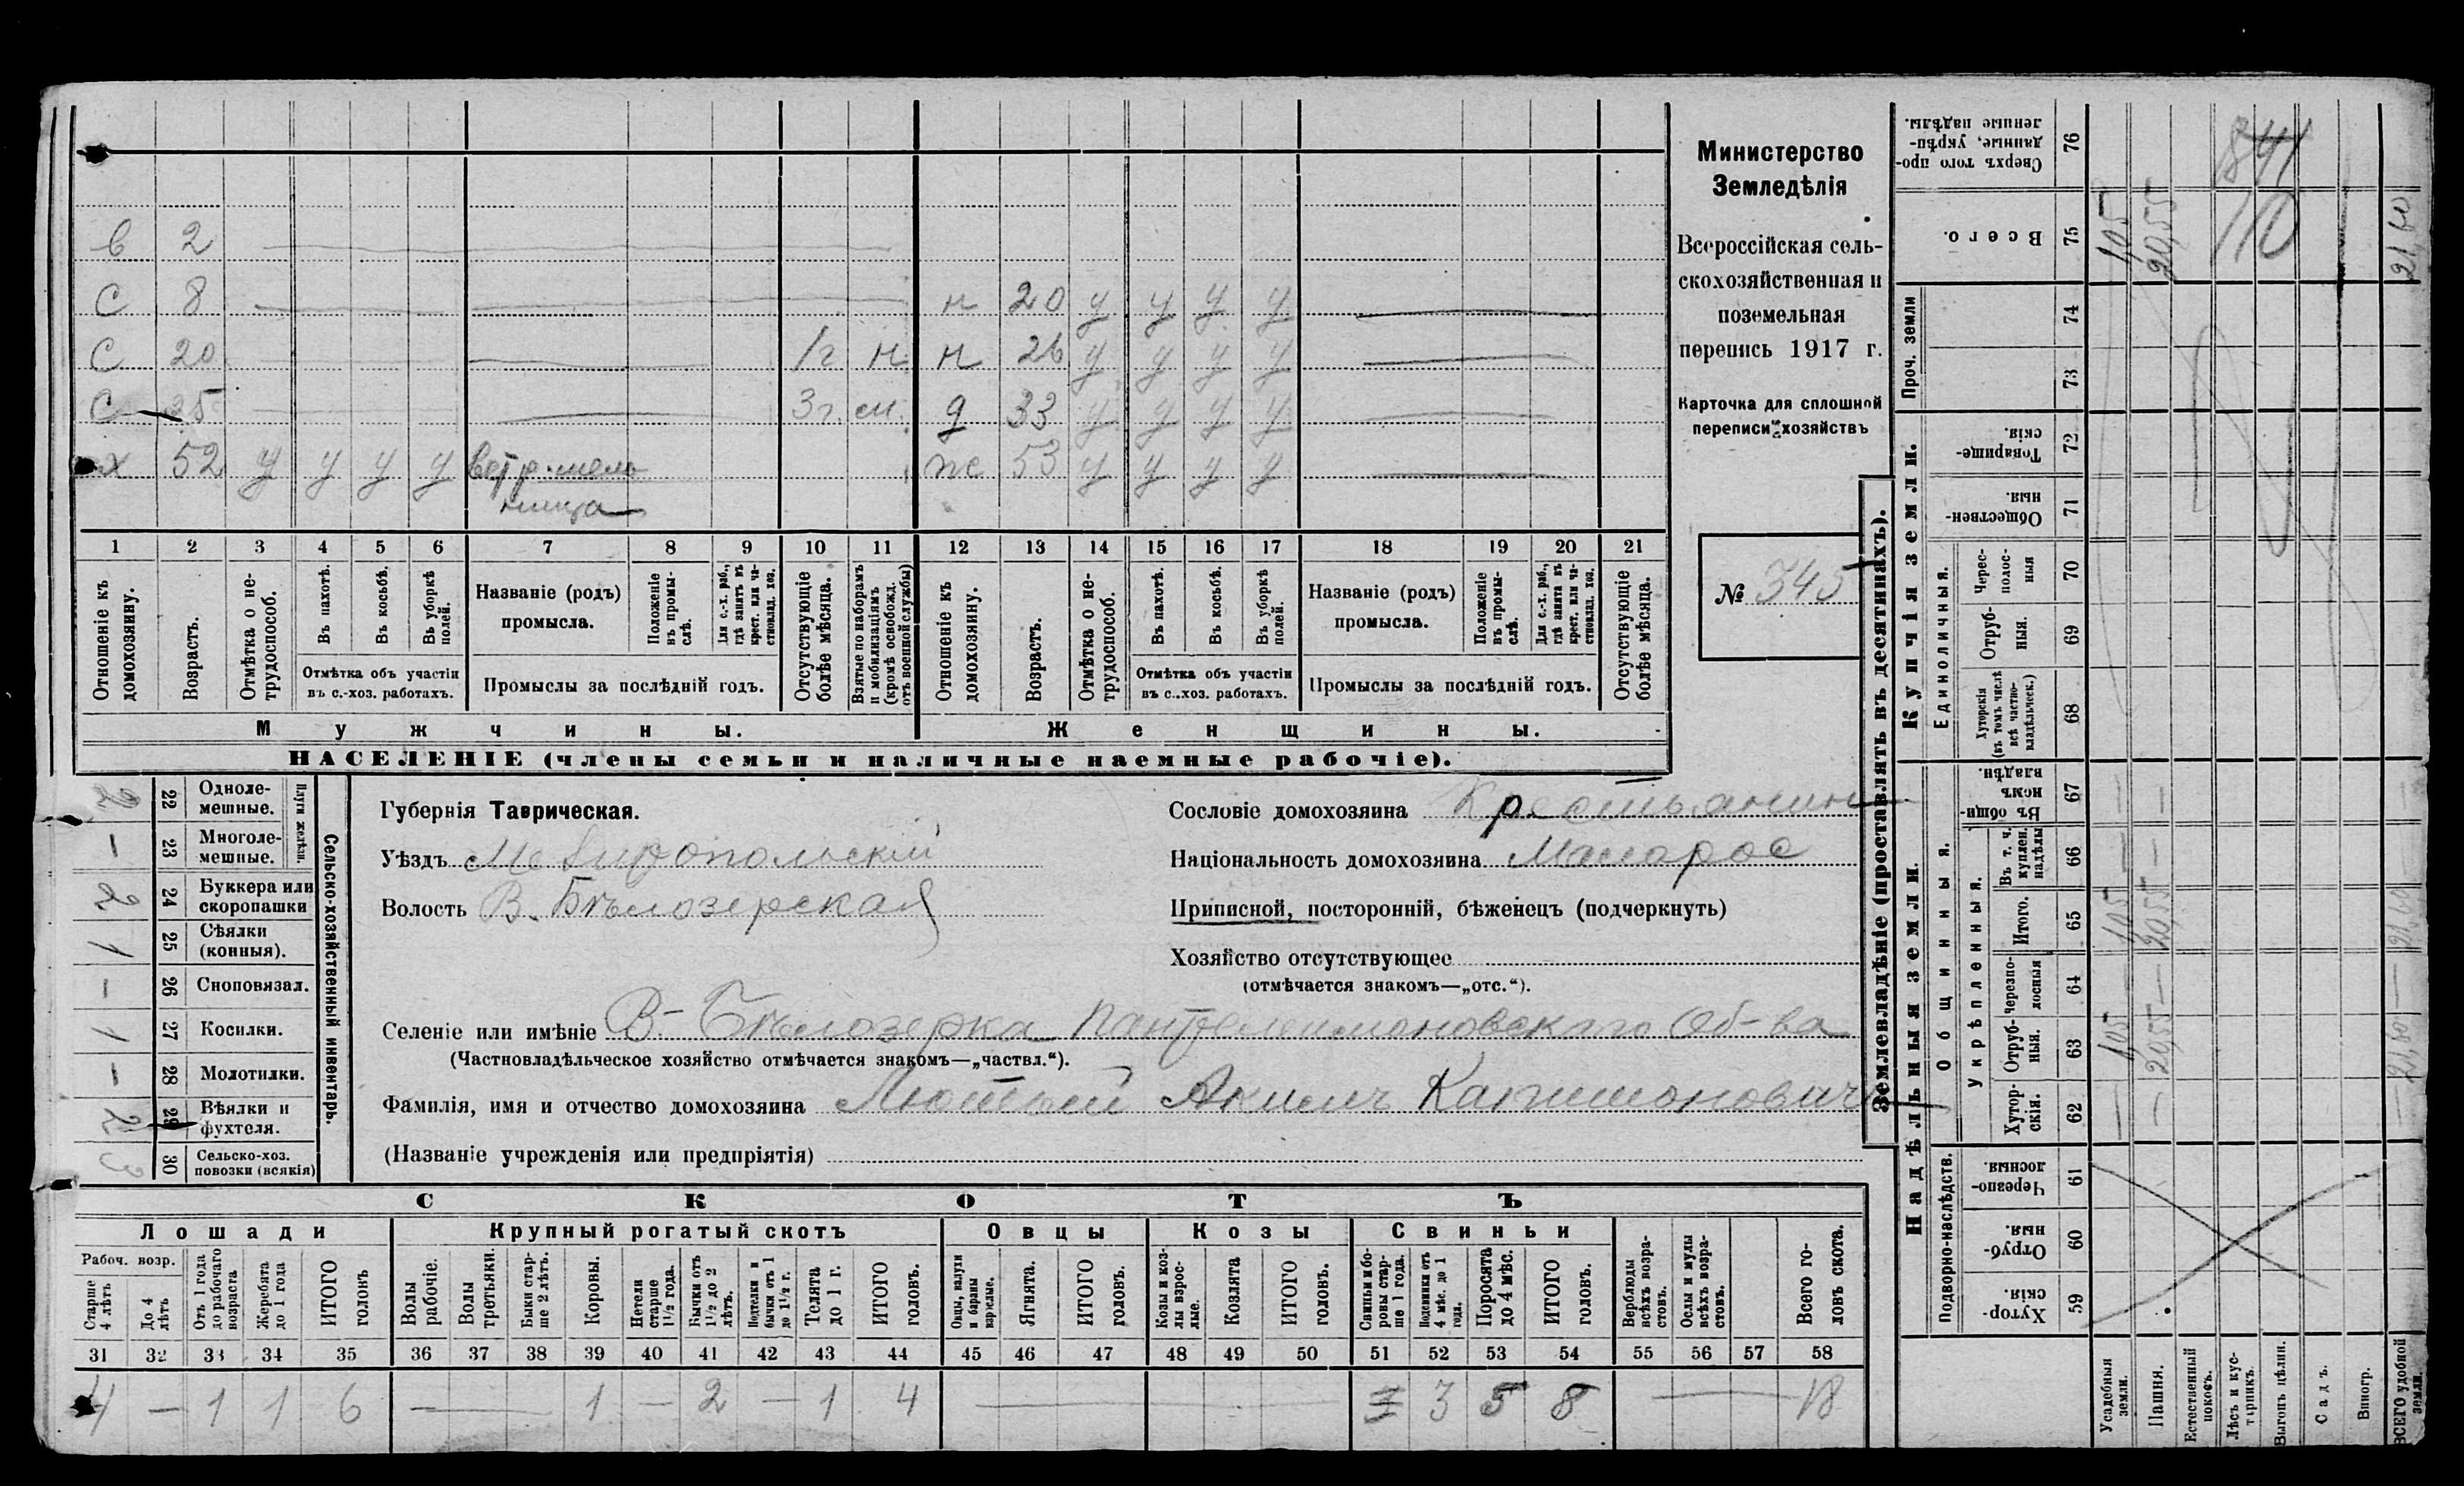 в 2
С 8 н 20 у у у у
С 20 1 г н н 26 у у у у
С 25 3 г. м. д 33 у у у у
х 52 у у у у ветр. мель ж 53 у у у у
ница
1 2 3 4 5 6 7 8 9 10 11 12 13 14 15 16 17 18 19 20 21
Отношеніе къ домохозяину.
Возрастъ.
Отмѣтка о не-трудоспособ.
Въ пахотѣ.
Въ косьбѣ.
Въ уборкѣ полей.
Отмѣтка объ участіи
въ с.-хоз. работахъ.
Названіе (родъ)
промысла.
Положеніе въ промы-слѣ.
Для с.-х. раб., гдѣ занятъ въ крест. или ча-стновлад. хоз.
Промыслы за послѣдній годъ.
Отсутствующіе болѣе мѣсяца.
Взятые по наборамъ и мобилизаціямъ (кромѣ освобожд. отъ военной службы)
Отношеніе къ домохозяину.
Возрастъ.
Отмѣтка о не-трудоспособ.
Въ пахотѣ.
Въ косьбѣ.
Въ уборкѣ полей.
Отмѣтка объ участіи
въ с..хоз. работахъ.
Названіе (родъ)
промысла.
Положеніе въ промы-слѣ.
Для с.-х. раб., гдѣ занята въ крест. или ча-стновлад. хоз.
Промыслы за послѣдній годъ.
Отсутствующіе болѣе мѣсяца.
Мужчины. Женщины.
НАСЕЛЕНІЕ (члены семьи и наличные наемные рабочіе).
Министерство
Земледѣлія
Всероссійская сель-
скохозяйственная и
поземельная
перепись 1917 г.
Карточка для сплошной
переписи хозяйствъ
№ 345
Сельско-хозяйственный инвентарь.
Плуги желѣзн.
2 22 Одноле-мешные.
— 23 Многоле-мешные.
2 24 Буккера или скоропашки
1 25 Сѣялки (конныя).
— 26 Сноповязал.
1 27 Косилки.
— 28 Молотилки.
2 29 Вѣялки и фухтеля.
3 30 Сельско-хоз. повозки (всякія)
Губернія Таврическая.
Уѣздъ Мелитопольскій
Волость В. Бѣлозерская
Сословіе домохозяина Крестьянин
Національность домохозяина Малорос
Приписной, посторонній, бѣженец (подчеркнуть)
Хозяйство отсутствующее
(отмѣчается знакомъ—„отс.“).
Селеніе или имѣніе В.-Бѣлозерка Пантелеимоновскаго Об-ва
(Частновладѣльческое хозяйство отмѣчается знакомъ—„частвл.“).
Фамилія, имя и отчество домохозяина Лютый Акимъ Капитонович
(Названіе учрежденія или предпріятія)
СКОТЪ
Лошади Крупный рогатый скотъ Овцы Козы Свиньи
Рабоч. возр.
Старше 4 лѣтъ
До 4 лѣтъ
Отъ 1 года до рабочаго возраста
Жеребята до 1 года
ИТОГО головъ
Волы рабочіе.
Волы третьяки.
Быки стар-ше 2 лѣтъ.
Коровы.
Нетели старше 1 1/2 года.
Бычки отъ 1 1/2 до 2 лѣтъ.
Подтелки и бычки отъ 1 до 1 1/2 г.
Телята до 1 г.
ИТОГО головъ.
Овцы, валухи и бараны взрослые.
Ягнята.
ИТОГО головъ.
Козы и коз-лы взрос-лые.
Козлята
ИТОГО головъ.
Свиньи и бо-ровы стар-ше 1 года.
Подсвинки отъ 4 мѣс. до 1 года.
Поросята до 4 мѣс.
ИТОГО головъ.
Верблюды всѣхъ возра-стовъ.
Ослы и мулы всѣхъ возра-стовъ.
Всего го-ловъ скота.
31 32 33 34 35 36 37 38 39 40 41 42 43 44 45 46 47 48 49 50 51 52 53 54 55 56 57 58
4 — 1 1 6 — 1 — 2 — 1 4 — 3 5 8 — 18
Землевладѣніе (проставлять въ десятинахъ).
Купчія земли.
Надѣльныя земли.
Сверхъ того про-данные, укрѣп-ленные надѣлы. 76
Всего. 75
Проч. земли 74 73
Товарище-скія. 72
Обществен-ныя. 71
Единоличныя.
Черес-полос-ныя 70
Отруб-ныя. 69
Хуторскія (въ томъ числѣ всѣ частно-владѣльческ.) 68
Общинныя.
Въ общи-номъ владѣн. 67
Укрѣпленныя.
Въ т. ч. куплен. надѣлы 66
Итого. 65
Черезпо-лосныя 64
Отруб-ныя. 63
Хутор-скія. 62
Подворно-наслѣдств.
Черезпо-лосныя. 61
Отруб-ныя. 60
Хутор-скія. 59
Усадебныя земли. — 1,05 — 1,05 — — 1,05
Пашня. — 20,55 — 20,55 — — 20,55
Естественный покосъ.
Лѣсъ и кус-тарникъ.
Выгонъ цѣлин.
Садъ.
Виногр.
ВСЕГО удобной земли. — 21,60 — 21,60 — 21,60
110